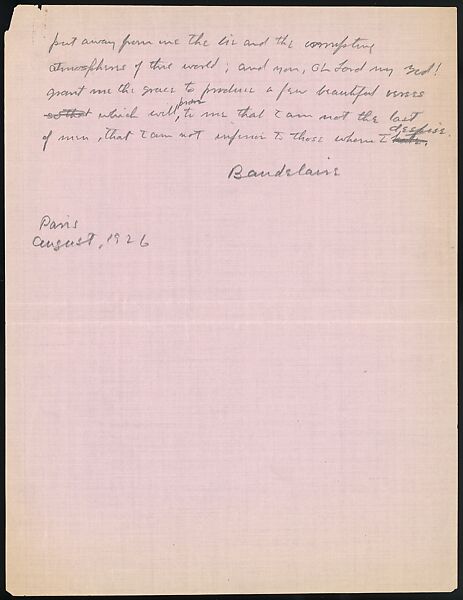 put away from me the lie and the corrupting
atmosphere of this world; and you, Oh Lord my God!
grant me the grace to produce a few beautiful verses
so that which will prove to me that I am not the last
of men, that I am not inferior to those whom I hate, despise.
Baudelaire
Paris
August, 1926